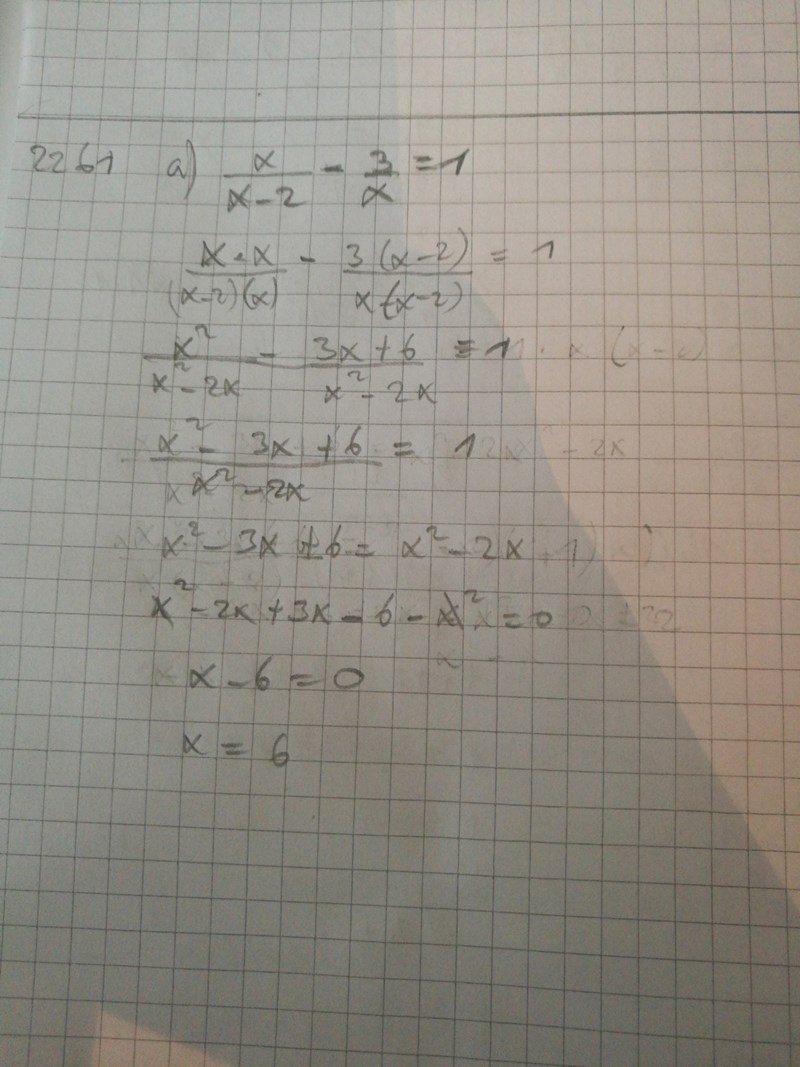 2261 a) x/(x-2) - 3/x = 1
(x·x)/((x-2)(x)) - 3(x-2)/(x(x-2)) = 1
x²/(x²-2x) - (3x+6)/(x²-2x) = 1
(x² - 3x + 6)/(x²-2x) = 1
x² - 3x + 6 = x² - 2x
x² - 2x + 3x - 6 - x² = 0
x - 6 = 0
x = 6